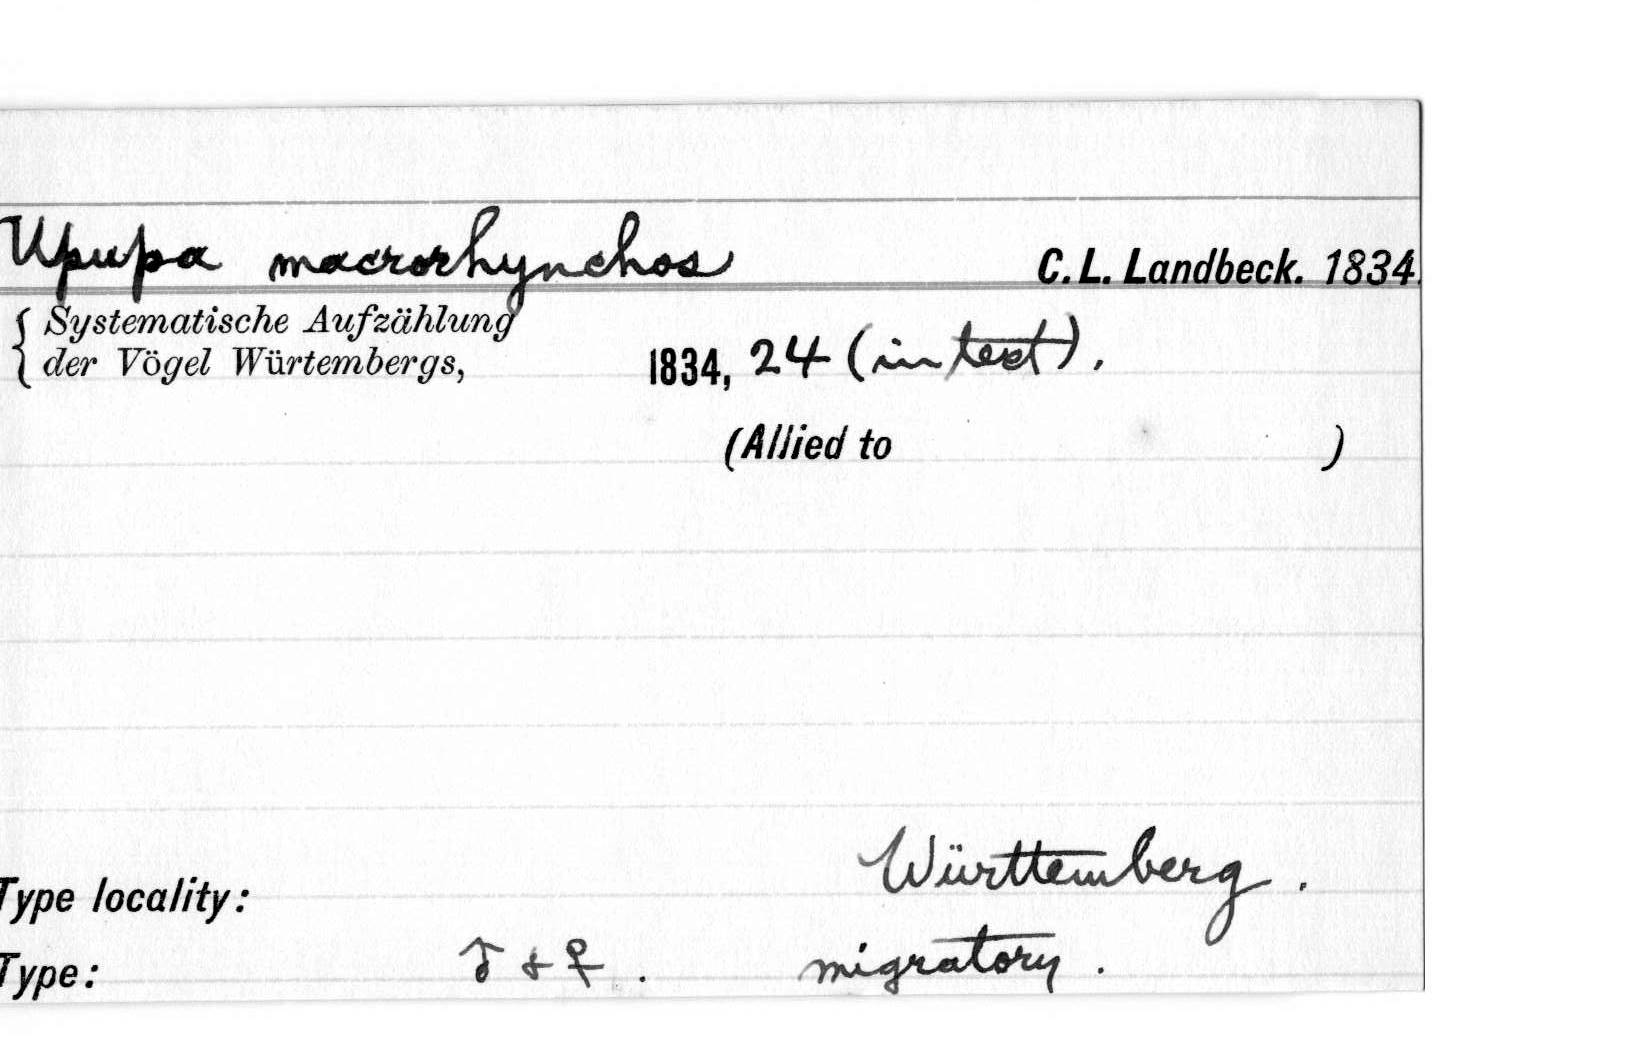 Upupa macrorhynchos C. L. Landbeck. 1834.
Systematische Aufzählung
der Vögel Würtembergs, 1834, 24 (in text).
(Allied to )
Type locality: Württemberg.
Type: ♂ & ♀. migratory.